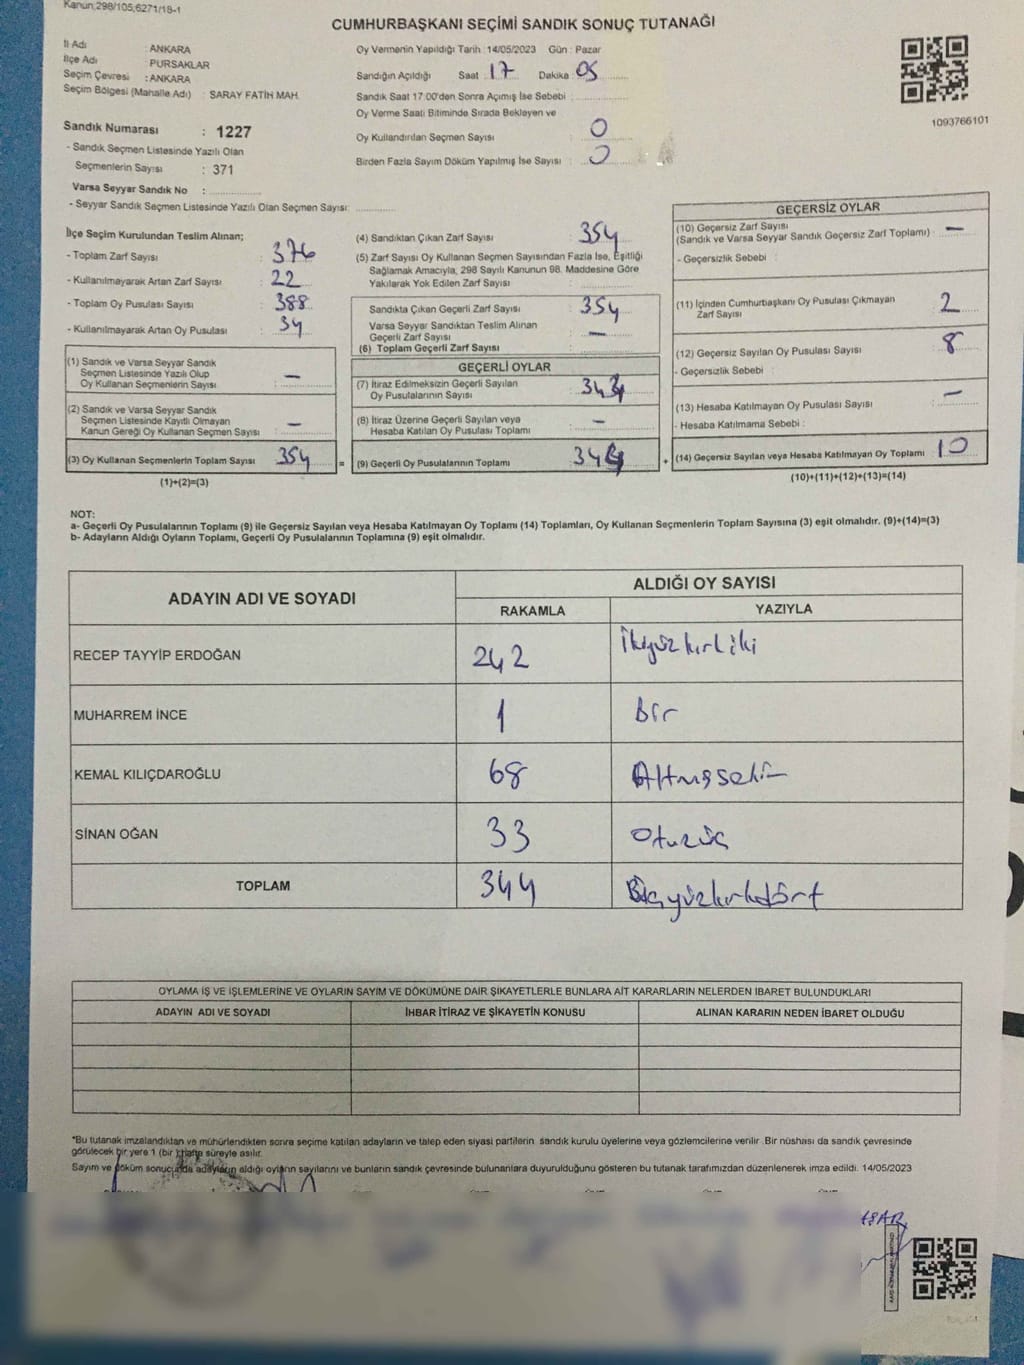 Kanun;298/105,6271/18-1
CUMHURBAŞKANI SEÇİMİ SANDIK SONUÇ TUTANAĞI
İl Adı : ANKARA
İlçe Adı : PURSAKLAR
Seçim Çevresi : ANKARA
Seçim Bölgesi (Mahalle Adı) : SARAY FATİH MAH.
Oy Vermenin Yapıldığı Tarih : 14/05/2023 Gün : Pazar
Sandığın Açıldığı Saat : 17 Dakika : 05
Sandık Saat 17:00'den Sonra Açımış İse Sebebi :
Oy Verme Saati Bitiminde Sırada Bekleyen ve
Oy Kullandırılan Seçmen Sayısı : 0
Birden Fazla Sayım Döküm Yapılmış İse Sayısı : 0
1093766101
Sandık Numarası : 1227
- Sandık Seçmen Listesinde Yazılı Olan
Seçmenlerin Sayısı : 371
Varsa Seyyar Sandık No :
- Seyyar Sandık Seçmen Listesinde Yazılı Olan Seçmen Sayısı:
İlçe Seçim Kurulundan Teslim Alınan;
- Toplam Zarf Sayısı : 376
- Kullanılmayarak Artan Zarf Sayısı : 22
- Toplam Oy Pusulası Sayısı : 388
- Kullanılmayarak Artan Oy Pusulası : 34
(1) Sandık ve Varsa Seyyar Sandık
Seçmen Listesinde Yazılı Olup
Oy Kullanan Seçmenlerin Sayısı : —
(2) Sandık ve Varsa Seyyar Sandık
Seçmen Listesinde Kayıtlı Olmayan
Kanun Gereği Oy Kullanan Seçmen Sayısı : —
(3) Oy Kullanan Seçmenlerin Toplam Sayısı : 354
(1)+(2)=(3)
(4) Sandıktan Çıkan Zarf Sayısı : 354
(5) Zarf Sayısı Oy Kullanan Seçmen Sayısından Fazla İse, Eşitliği
Sağlamak Amacıyla; 298 Sayılı Kanunun 98. Maddesine Göre
Yakılarak Yok Edilen Zarf Sayısı :
Sandıkta Çıkan Geçerli Zarf Sayısı : 354
Varsa Seyyar Sandıktan Teslim Alınan
Geçerli Zarf Sayısı : —
(6) Toplam Geçerli Zarf Sayısı :
GEÇERLİ OYLAR
(7) İtiraz Edilmeksizin Geçerli Sayılan
Oy Pusulalarının Sayısı : 344
(8) İtiraz Üzerine Geçerli Sayılan veya
Hesaba Katılan Oy Pusulası Toplamı : —
= (9) Geçerli Oy Pusulalarının Toplamı : 344 +
GEÇERSİZ OYLAR
(10) Geçersiz Zarf Sayısı
(Sandık ve Varsa Seyyar Sandık Geçersiz Zarf Toplamı) : —
- Geçersizlik Sebebi :
(11) İçinden Cumhurbaşkanı Oy Pusulası Çıkmayan
Zarf Sayısı : 2
(12) Geçersiz Sayılan Oy Pusulası Sayısı : 8
- Geçersizlik Sebebi :
(13) Hesaba Katılmayan Oy Pusulası Sayısı : —
- Hesaba Katılmama Sebebi :
(14) Geçersiz Sayılan veya Hesaba Katılmayan Oy Toplamı : 10
(10)+(11)+(12)+(13)=(14)
NOT:
a- Geçerli Oy Pusulalarının Toplamı (9) ile Geçersiz Sayılan veya Hesaba Katılmayan Oy Toplamı (14) Toplamları, Oy Kullanan Seçmenlerin Toplam Sayısına (3) eşit olmalıdır. (9)+(14)=(3)
b- Adayların Aldığı Oyların Toplamı, Geçerli Oy Pusulalarının Toplamına (9) eşit olmalıdır.
ADAYIN ADI VE SOYADI ALDIĞI OY SAYISI
RAKAMLA YAZIYLA
RECEP TAYYİP ERDOĞAN 242 İkiyüzkırkiki
MUHARREM İNCE 1 Bir
KEMAL KILIÇDAROĞLU 68 Altmışsekiz
SİNAN OĞAN 33 Otuzüç
TOPLAM 344 Üçyüzkırkdört
OYLAMA İŞ VE İŞLEMLERİNE VE OYLARIN SAYIM VE DÖKÜMÜNE DAİR ŞİKAYETLERLE BUNLARA AİT KARARLARIN NELERDEN İBARET BULUNDUKLARI
ADAYIN ADI VE SOYADI İHBAR İTİRAZ VE ŞİKAYETİN KONUSU ALINAN KARARIN NEDEN İBARET OLDUĞU
*Bu tutanak imzalandıktan ve mühürlendikten sonra seçime katılan adayların ve talep eden siyasi partilerin sandık kurulu üyelerine veya gözlemcilerine verilir. Bir nüshası da sandık çevresinde
görülecek bir yere 1 (bir) hafta süreyle asılır.
Sayım ve döküm sonucunda adayların aldığı oyların sayılarını ve bunların sandık çevresinde bulunanlara duyurulduğunu gösteren bu tutanak tarafımızdan düzenlenerek imza edildi. 14/05/2023